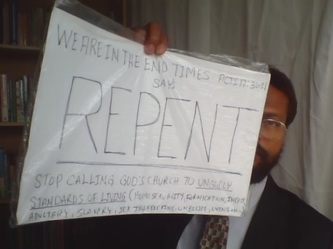 WE ARE IN THE END TIMES ACTS 17:30-31
SAY
REPENT
STOP CALLING GOD'S CHURCH TO UNGODLY
STANDARDS OF LIVING (HOMOSEXUALITY, FORNICATION,
ADULTERY, SLAVERY, SEX TRAFFICKING